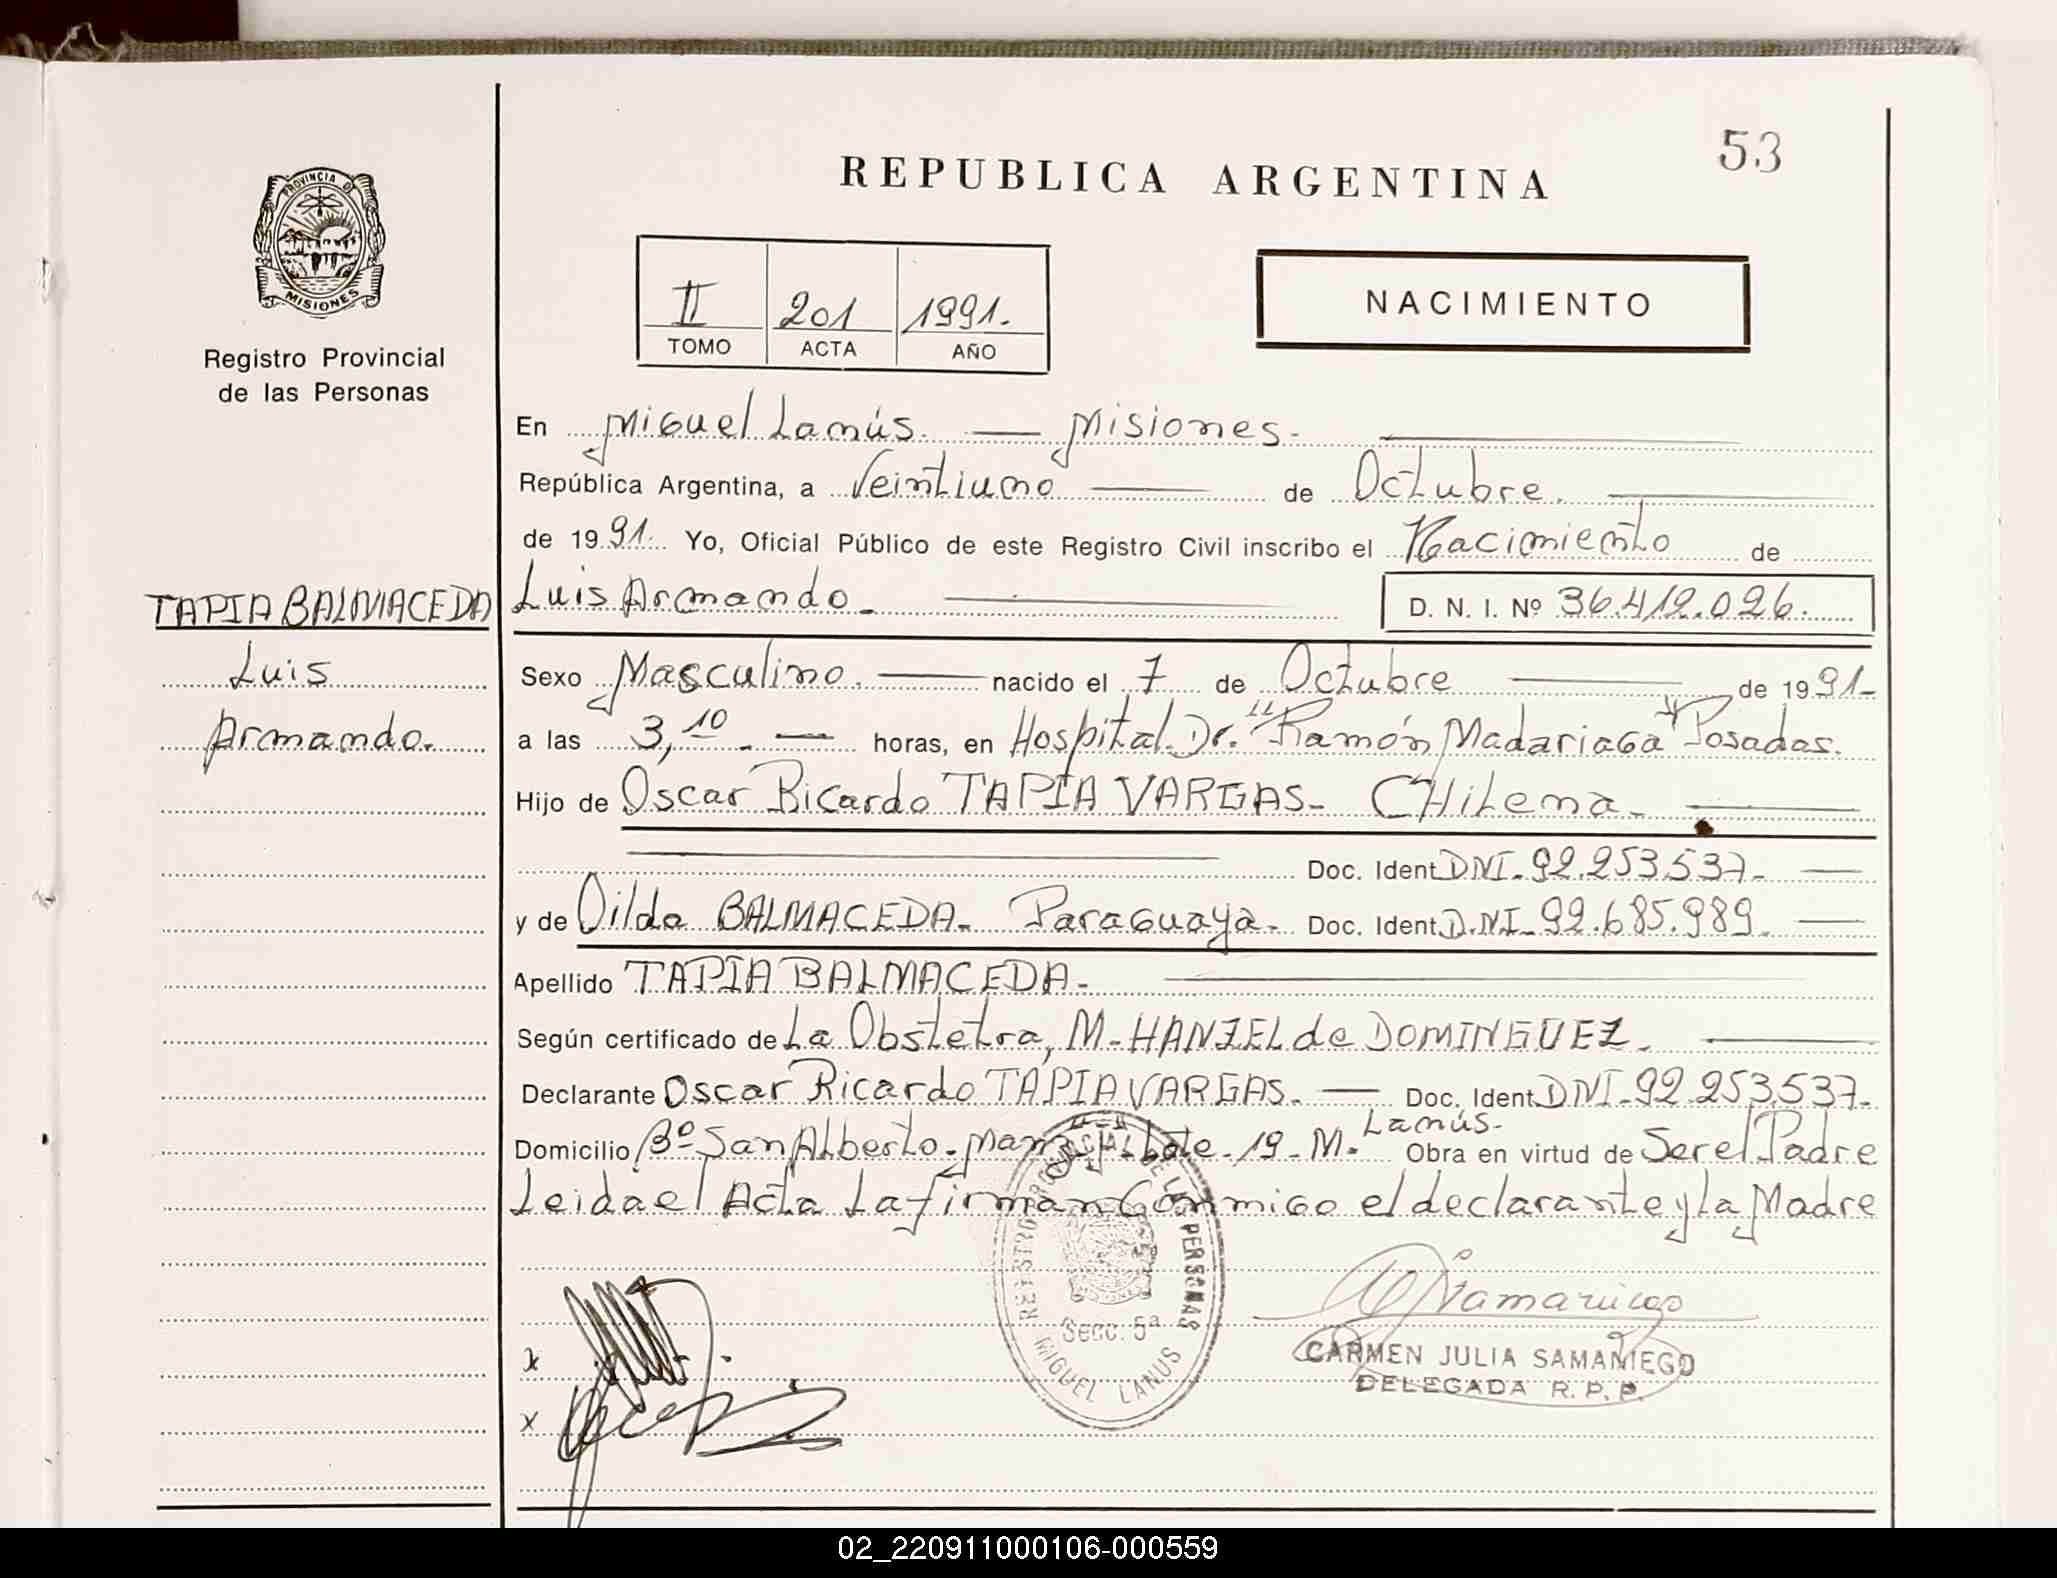 53
REPUBLICA ARGENTINA
PROVINCIA DE
MISIONES
Registro Provincial
de las Personas
II 201 1991.
TOMO ACTA AÑO
NACIMIENTO
En Miguel Lanús. — Misiones.
República Argentina, a Veintiuno — de Octubre.
de 1991. Yo, Oficial Público de este Registro Civil inscribo el Nacimiento de
TAPIA BALMACEDA
Luis
Armando.
Luis Armando. — D. N. I. Nº 36.412.026.
Sexo Masculino. — nacido el 7 de Octubre — de 1991-
a las 3,10. — horas, en Hospital Dr. "Ramón Madariaga" Posadas.
Hijo de Oscar Ricardo TAPIA VARGAS- CHilena. —
Doc. Ident DNI. 92.253.537. —
y de Oilda BALMACEDA. Paraguaya. Doc. Ident D.NI. 92.685.989. —
Apellido TAPIA BALMACEDA. —
Según certificado de La Obstetra, M. HANZEL de DOMINGUEZ. —
Declarante Oscar Ricardo TAPIA VARGAS. — Doc. Ident DNI. 92.253.537.
Domicilio Bº San Alberto. Manz. Lote. 19. M. Lanús. Obra en virtud de Ser el Padre
Leida el Acta La firman Conmigo el declarante y la Madre
REGISTRO PROVINCIAL DE LAS PERSONAS
Secc. 5ª
MIGUEL LANUS
x
x
CARMEN JULIA SAMANIEGO
DELEGADA R. P. P.
02_220911000106-000559